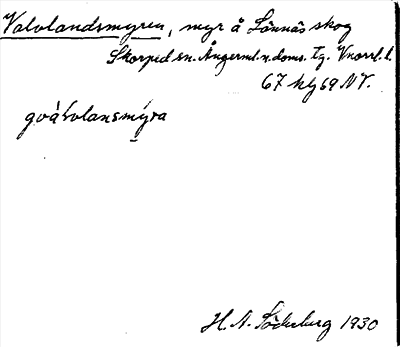 Valvlandsmyren, myr å Lännäs skog
Skorped sn. Ångerml. n. doms. Tg. Vnorrl. l.
67 hg 69 NV.
gvávolansmýra
H. A. Söderberg 1930